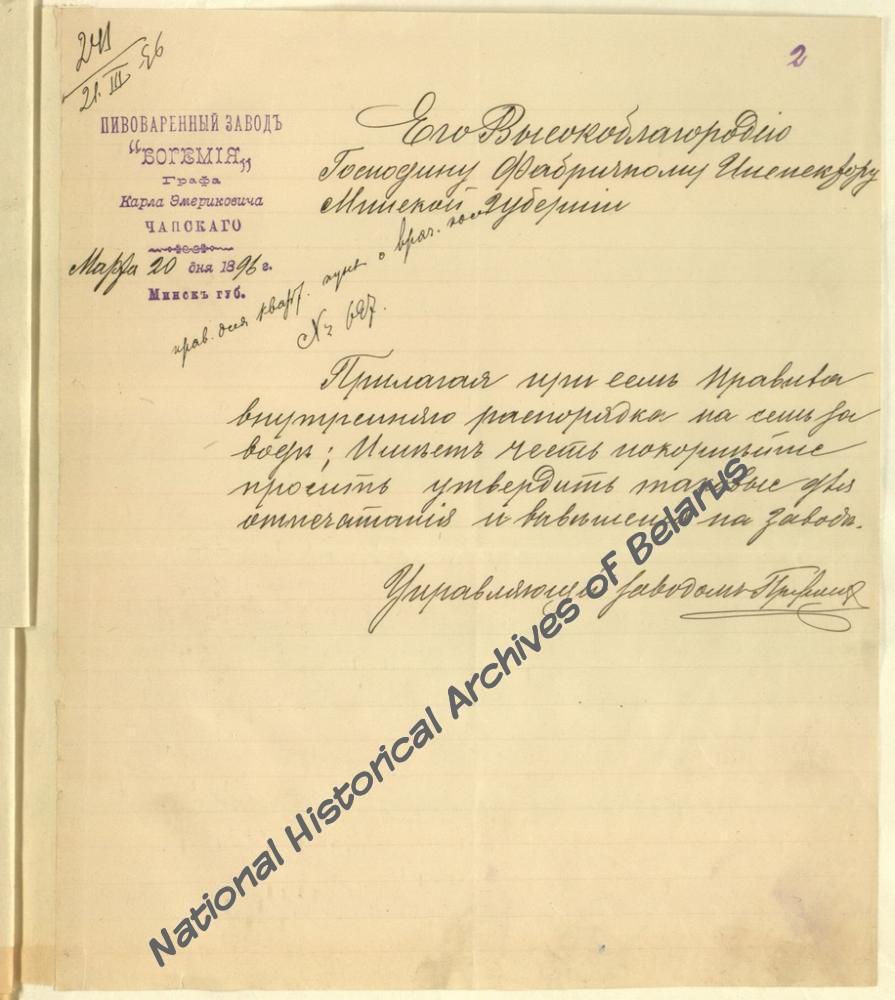 241
21.III 96
2
ПИВОВАРЕННЫЙ ЗАВОДЪ
"БОГЕМІЯ„
Графа
Карла Эмериковича
ЧАПСКАГО
Марта 20 дня 1896 г.
Минскъ губ.
Его Высокоблагородію
Господину Фабричному Инспектору
Минской Губерніи
прав. для кварт. пунк. о врач. пом.
№ 697.
Прилагая при семъ правила
внутренняго распорядка на семъ за
водѣ; Имѣетъ честь покорнѣйше
просить утвердить таковые для
отпечатанія и на заводѣ.
Управляющій заводомъ
National Historical Archives of Belarus